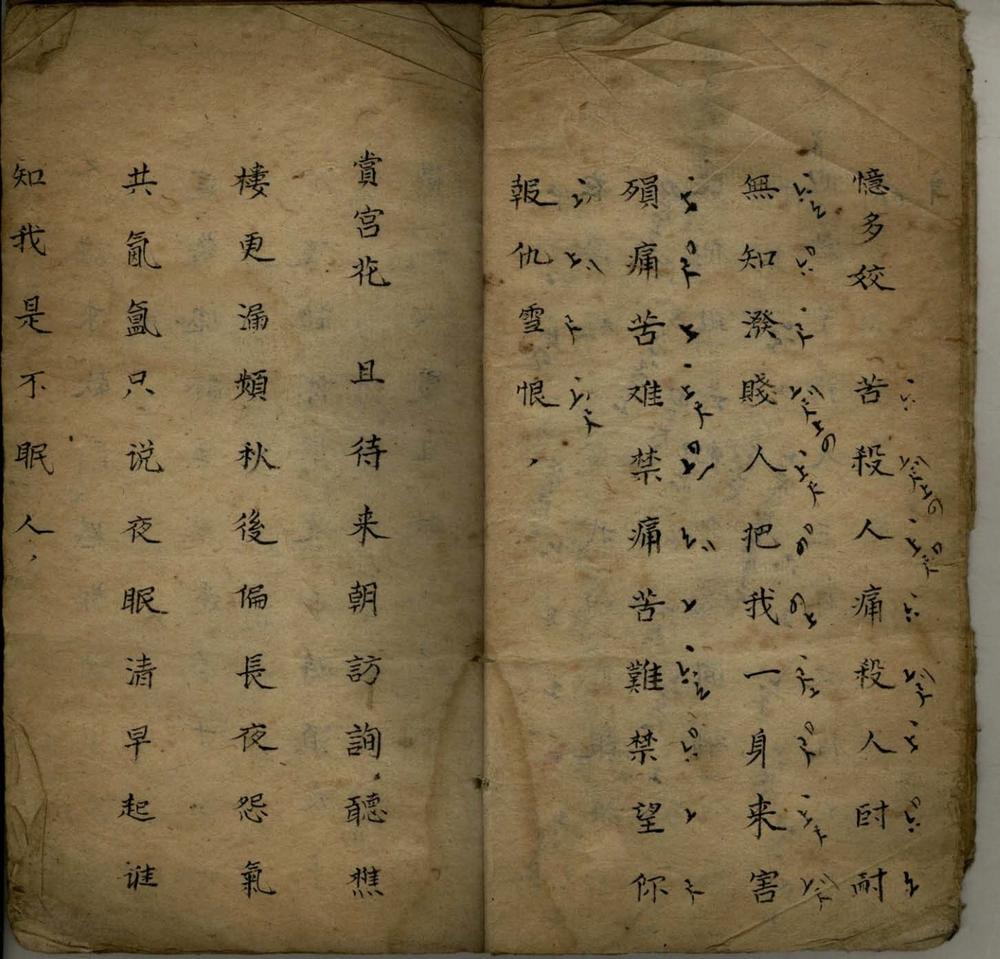 憶多姣 苦殺人痛殺人時耐
無知潑賤人把我一身来害
殞痛苦难禁痛苦難禁望你
報仇雪恨，
賞宮花 且待来朝訪詢聽樵
樓更漏頻秋後偏長夜怨氣
共氤氳只说夜眠清早起谁
知我是不眠人，